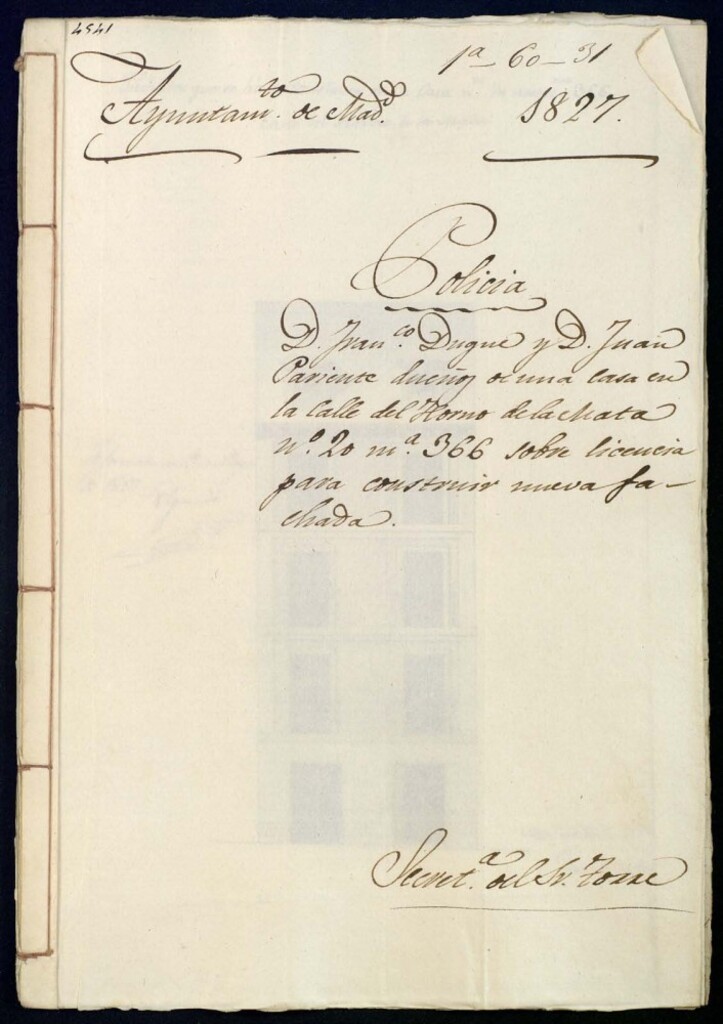 4541
1ª-60-31
Ayuntamto. de Madd. 1827.
Policia
D. Franco. Dugue y D. Juan
Pariente dueños de una casa en
la Calle del Horno de la Mata
nº. 20 mª. 366 sobre licencia
para construir nueva fa-
chada.
Secreta. del Sr. Torre